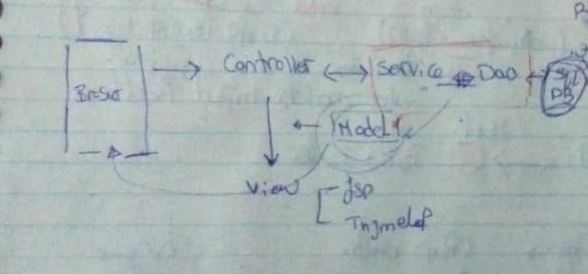 Controller
Service
Dao
SQL
DB
Model
View
jsp
Thymelef